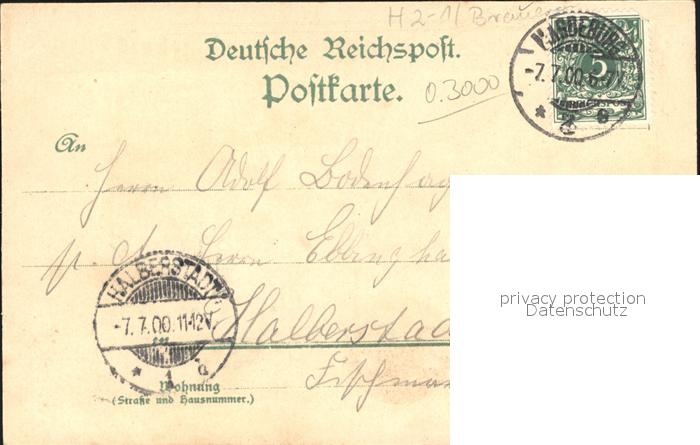 H 2-1/ Brauerei
Deutsche Reichspost.
Postkarte.
0.3000
MAGDEBURG
-7.7.00.6-7V
* 2 e
5
REICHSPOST
An
Herrn Adolf Bodenhag
p. A. Herrn Ebbingha
Halberstad
Fischma
HALBERSTADT
-7.7.00.11-12V.
* 1 d
Wohnung
(Straße und Hausnummer.)
privacy protection
Datenschutz